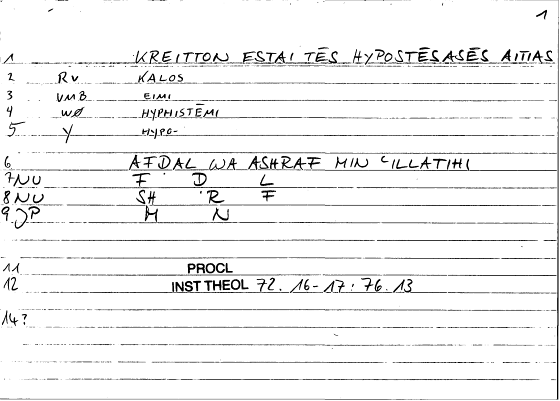 1
1 KREITTON ESTAI TĒS HYPOSTĒSASĒS AITIAS
2 Rv KALOS
3 VMB EIMI
4 wø HYPHISTĒMI
5 Y HYPO-
6 AFDAL WA ASHRAF MIN ʿILLATIHI
7 NU F D L
8 NU SH R F
9 JP M N
11 PROCL
12 INST THEOL 72. 16-17: 76.13
14?